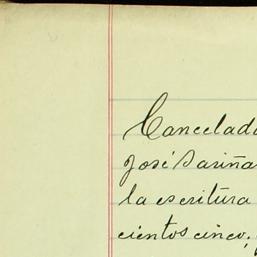 Cancelada
José Sariña
la escritura
cientos cinco,